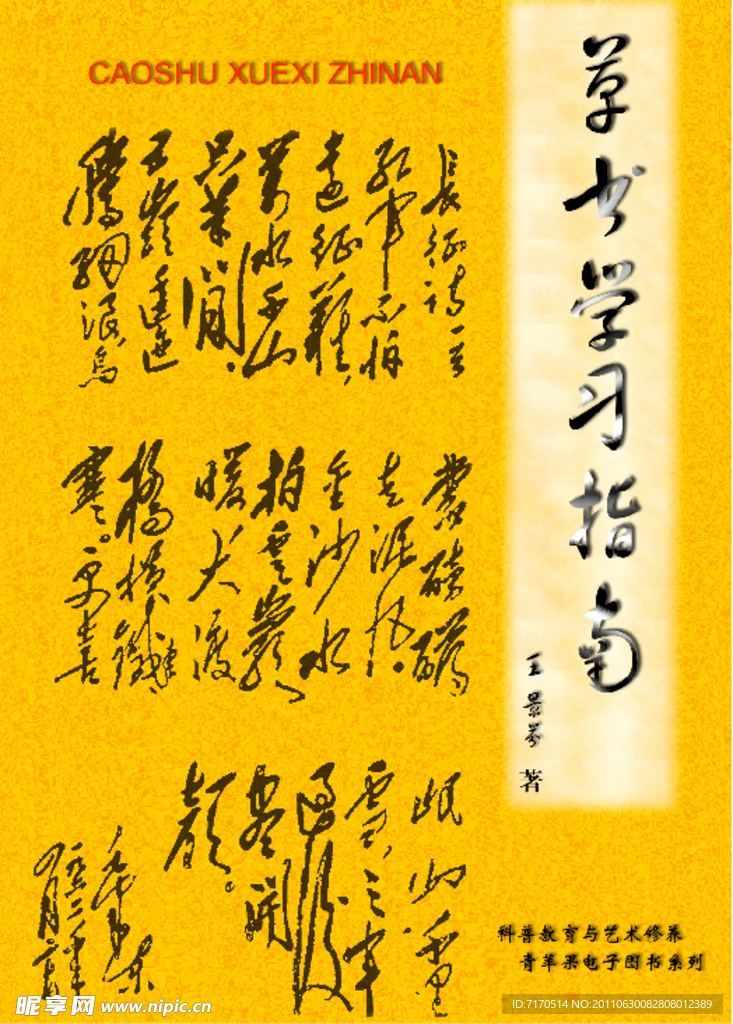 CAOSHU XUEXI ZHINAN
草书学习指南
王景芬 著
長征詩一首
紅軍不怕
遠征難，
萬水千山
只等閒。
五嶺逶迤
騰細浪烏
蒙磅礴
走泥丸。
金沙水
拍雲巖
暖大渡
橋橫鐵索
寒。更喜
岷山千里
雪，三軍
過後
盡開
顏。
毛澤東
科普教育与艺术修养
青苹果电子图书系列
昵享网 www.nipic.cn
ID:7170514 NO:20110630082808012389